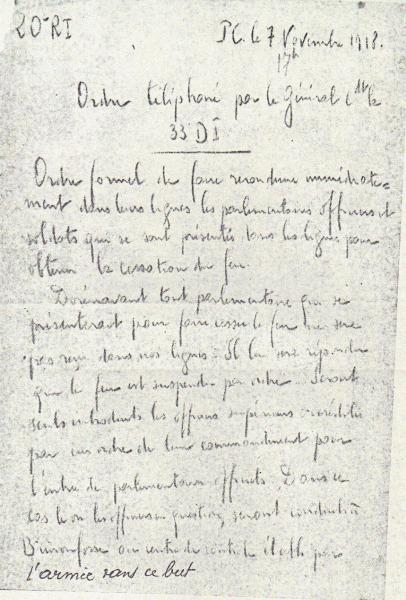 20e RI P.C. le 7 Novembre 1918.
17h
Ordre téléphoné par le Général Ct la
33 DI
Ordre formel de faire reconduire immédiate-
ment dans leurs lignes les parlementaires officiers et
soldats qui se sont présentés dans les lignes pour
obtenir la cessation du feu.
Dorénavant tout parlementaire qui se
présenterait pour faire cesser le feu ne sera
pas reçu dans nos lignes. Il lui sera répondu
que le feu est suspendu par ordre. Seront
seuls introduits les officiers supérieurs accrédités
par un ordre de leur commandement pour
l'entrée de parlementaires officiels. Dans ce
cas le ou les officiers en question, seront conduits à
ou centre de établi par
l'armée dans ce but